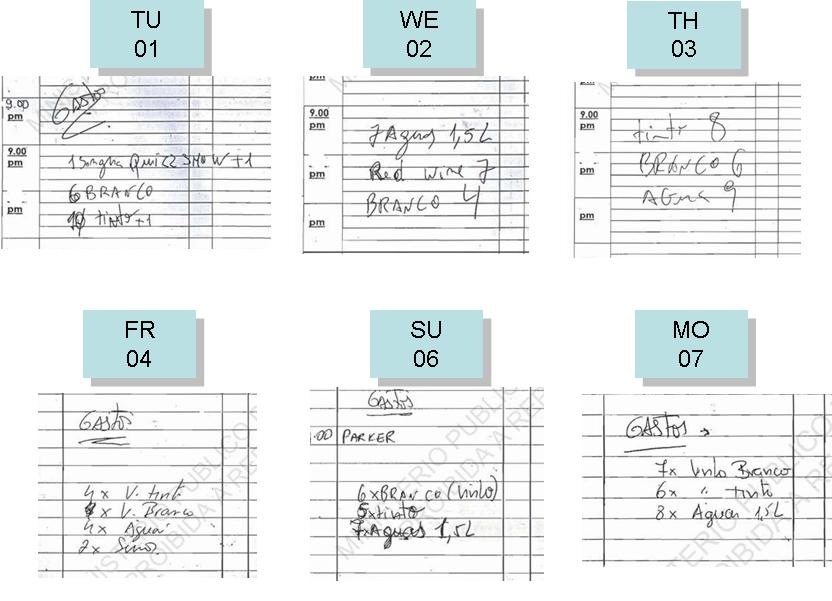 TU
01
WE
02
TH
03
9.00
pm
GASTOS
9.00
pm
1 Sangria Quizz 3HO W+1
6 BRANCO
pm
10 tinto+1
pm
9.00
pm
7 Aguas 1,5L
pm
Red Wine 7
BRANCO 4
pm
9.00
pm
tinto 8
pm
BRANCO 6
AGUA 9
pm
FR
04
SU
06
MO
07
GASTOS
4x V. tinto
x V. Branco
4x Agua
2x
GASTOS
.00 PARKER
6xBRANCO (Vinho)
5xtinto
7xAguas 1,5L
GASTOS →
7x Vinho Branco
6x " tinto
8x Aguas 1,5L
MINISTERIO PUBLICO
PROIBIDA A REP